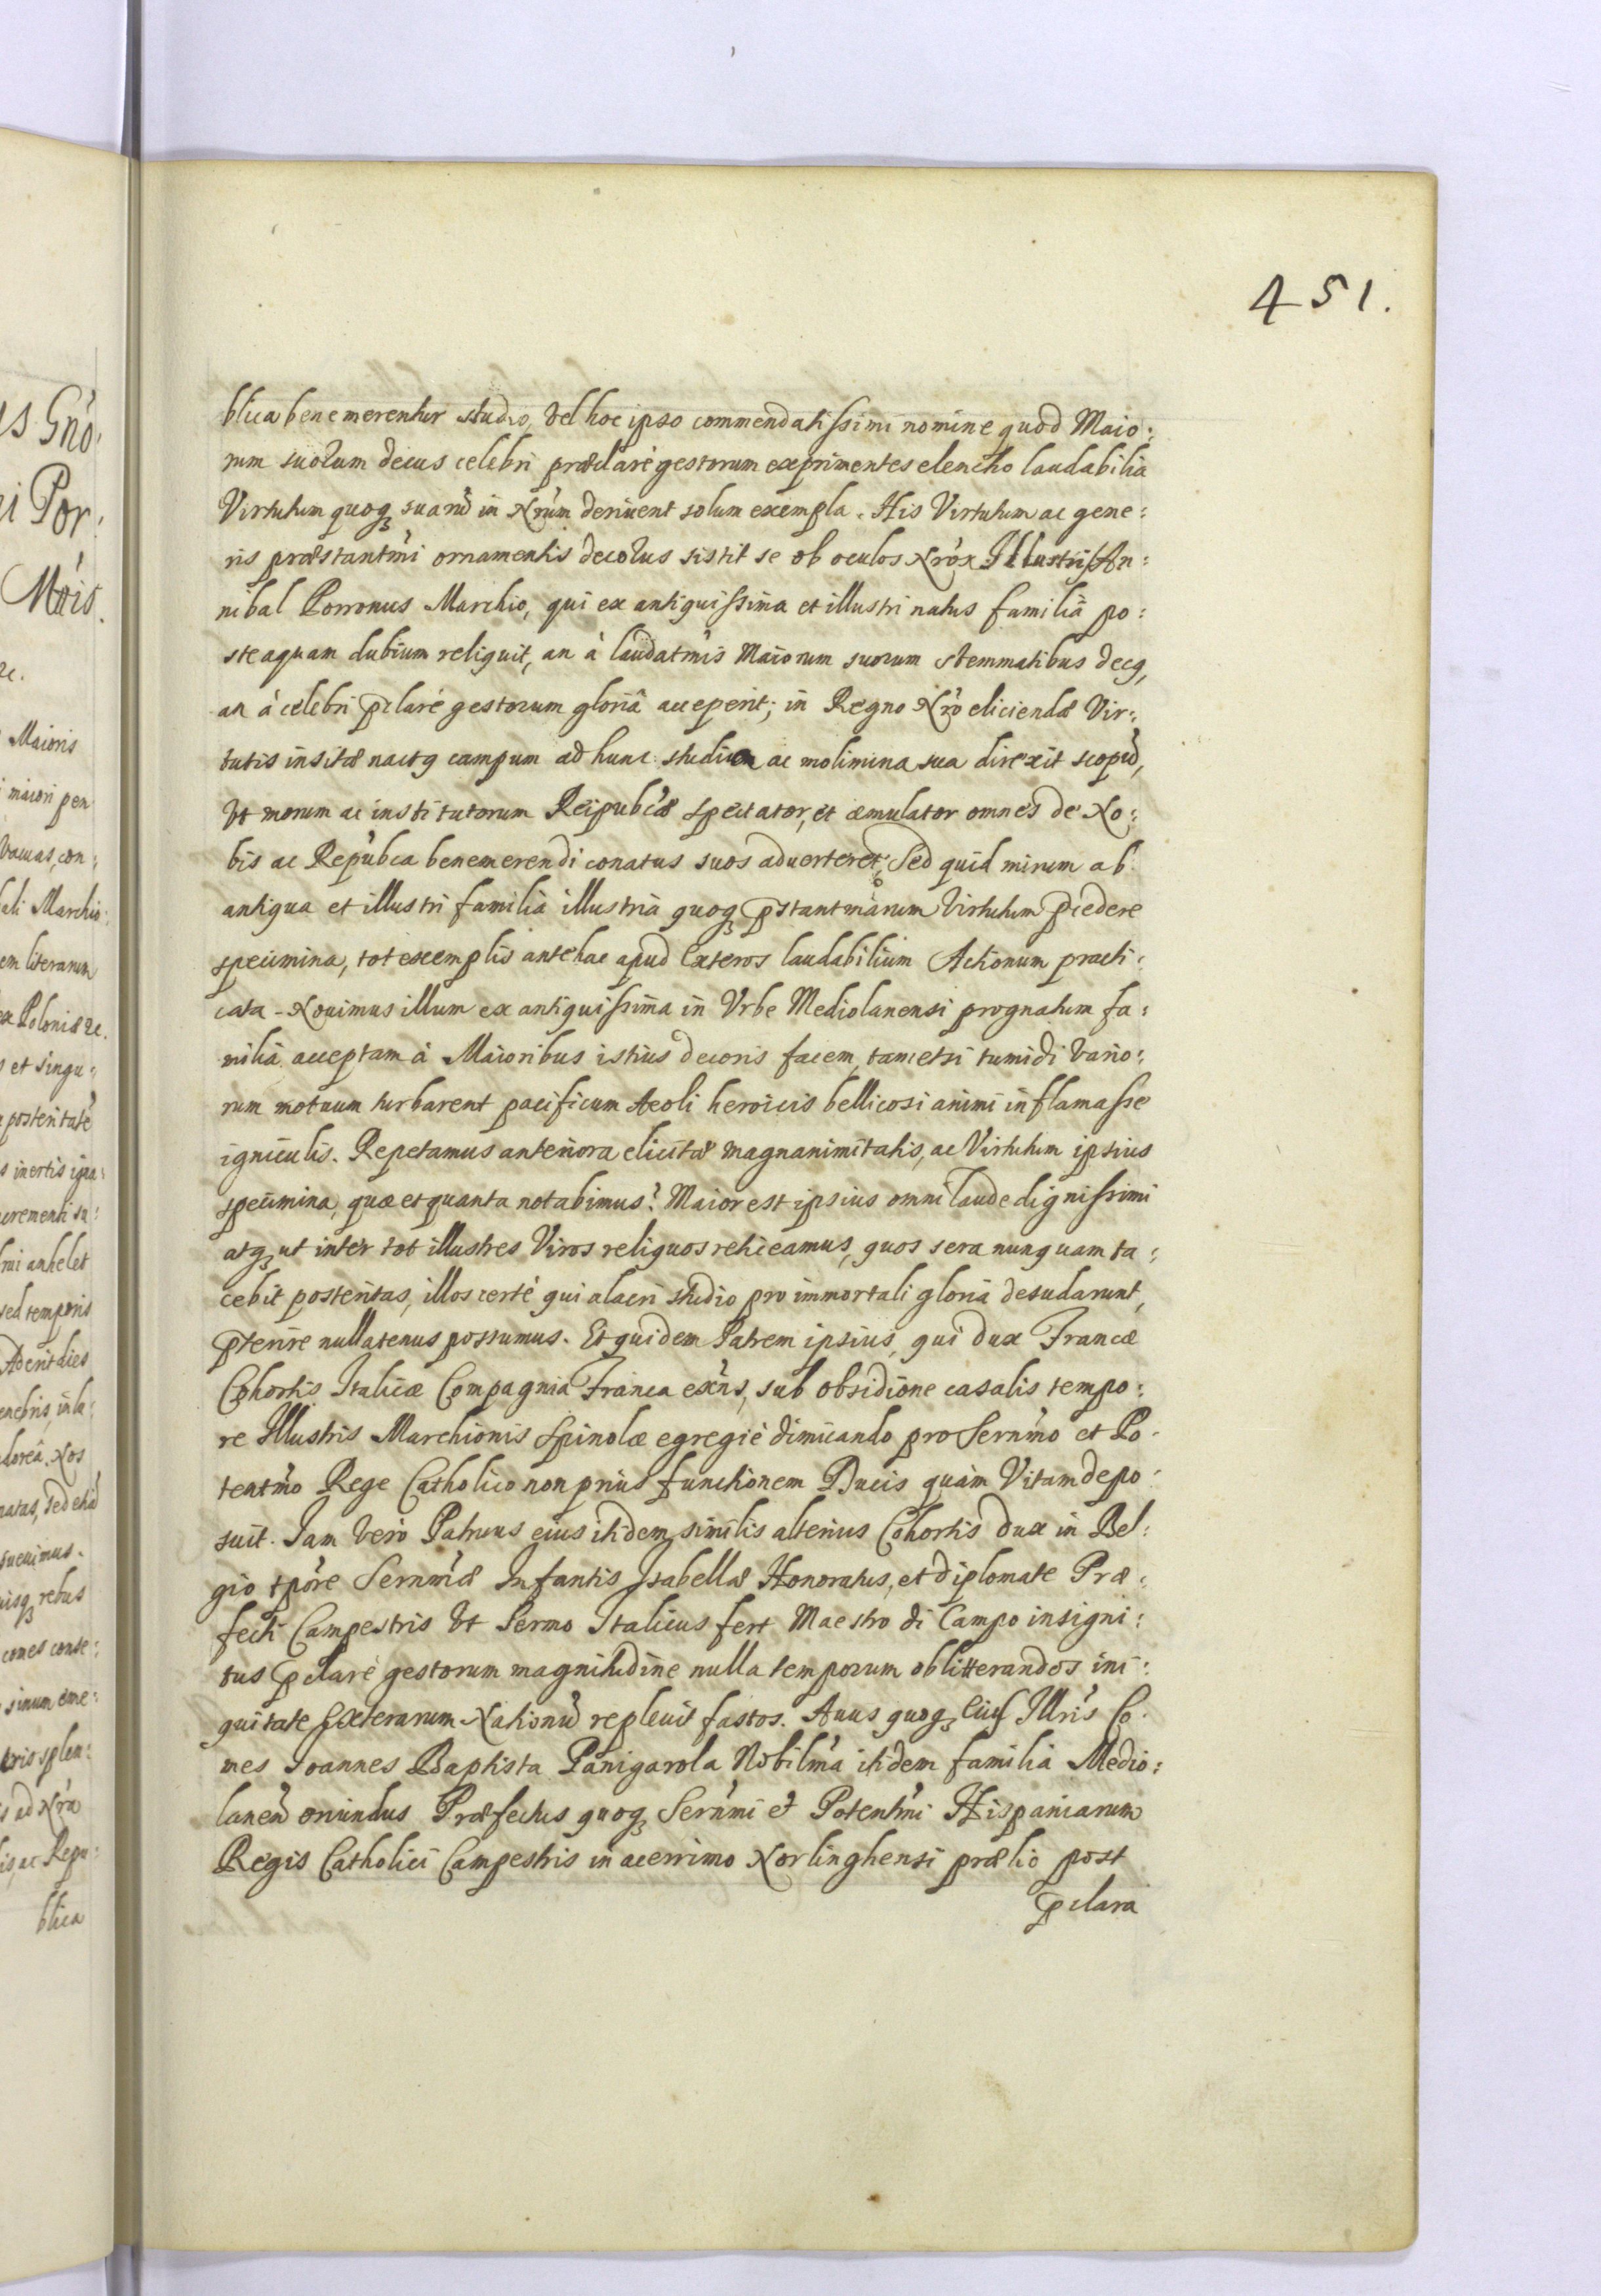 451.
blica bene merentur studio, vel hoc ipso commendatissimi nomine quod Maio:
rum suorum decus celebri præclarè gestorum exprimentes elencho laudabilia
Virtutum quoq₃ suarũ in Nrũm deriuent solum exempla. His Virtutum ac gene:
ris præstantmi ornamentis decorus sistit se ob oculos Nrõr Illustris An:
nibal Porronus Marchio, qui ex antiquissima et illustri natus familiâ po:
steaquam dubium reliquit, an à laudatmis Maiorum suorum stemmatibus decq,
an à celebri pclarè gestorum gloriâ acceperit; in Regno Nro eliciendæ Vir:
tutis insitæ nactq campum ad hunc studia ac molimina sua direxit scopũ,
Vt morum ac institutorum Reipubcæ spectator, et æmulator omnes de No:
bis ac Repubca benemerendi conatus suos aduerteret, Sed quid mirum ab
antiqua et illustri familia illustria quoq₃ pstantmarum Virtutum pcedere
specimina, tot exemplis antehac apud Exteros laudabilium Actionum practi:
cata. Nouimus illum ex antiquissima in Vrbe Mediolanensi prognatum fa:
miliâ acceptam à Maioribus istius decoris facem, tametsi tumidi vario:
rum motuum turbarent pacificum Aeoli heroicis bellicosi animi inflamasse
igniculis. Repetamus anteriora elicitæ magnanimitatis, ac Virtutum ipsius
specimina, quæ et quanta notabimus? Maior est ipsius omni laude dignissimi
atq₃ ut inter tot illustres Viros reliquos reticeamus, quos sera nunquam ta:
cebit posteritas, illos certè qui alacri studio pro immortali gloria desudarunt,
pterire nullatenus possumus. Et quidem Patrem ipsius, qui dux Francæ
Cohortis Italicæ Compagnia Franca exñs, sub obsidione casalis tempo:
re Illustris Marchionis Spinolæ egregiè dimicando pro Sernmo et Po:
tentmo Rege Catholico non prius functionem Ducis quàm Vitam depo:
suit. Iam verò Patruus eius itidem similis alterius Cohortis dux in Bel:
gio tpore Sernmæ Infantis Isabellæ Honoratus, et diplomate Præ:
fecti Campestris Vt Sermo Italicus fert Maestro di Campo insigni:
tus pclarè gestorum magnitudine nulla temporum oblitterandos ini:
quitate Exterarum Nationũ repleuit fastos. Auus quoq₃ Eius Illris Co:
mes Ioannes Baptista Panigarola Nobilma itidem familia Medio:
lanen̄ oriundus Præfectus quoq₃ Sernmi et Potentmi Hispaniarum
Regis Catholici Campestris in acerrimo Norlinghensi prælio post
pclara